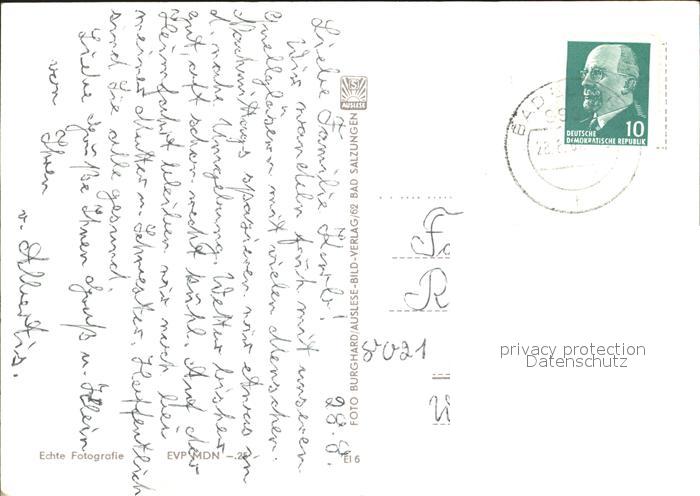 28.8.
Liebe Familie
Wir wandeln früh mit unseren
Quellgläsern mit vielen Menschen.
Nachmittags spazieren wir etwas in
d. nahe Umgebung. Wetter bisher
gut, oft schon recht kühl. Auf der
Heimfahrt bleiben wir noch bei
meiner Mutter u. Schwester. Hoffentlich
sind Sie alle gesund.
Liebe Grüße Ihnen Groß u. Klein
von Ihren
AUSLESE
FOTO BURGHARD/AUSLESE-BILD-VERLAG/62 BAD SALZUNGEN
El 6
Echte Fotografie
EVP MDN –.25
DEUTSCHE
DEMOKRATISCHE REPUBLIK
10
BAD
28.8.
Fa
R
8021
privacy protection
Datenschutz